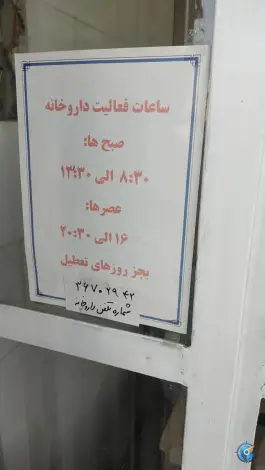 ساعات فعالیت داروخانه
صبح ها:
۸:۳۰ الی ۱۳:۳۰
عصرها:
۱۶ الی ۲۰:۳۰
بجز روزهای تعطیل
۳۶۷۰۲۹۴۲
شماره تلفن داروخانه